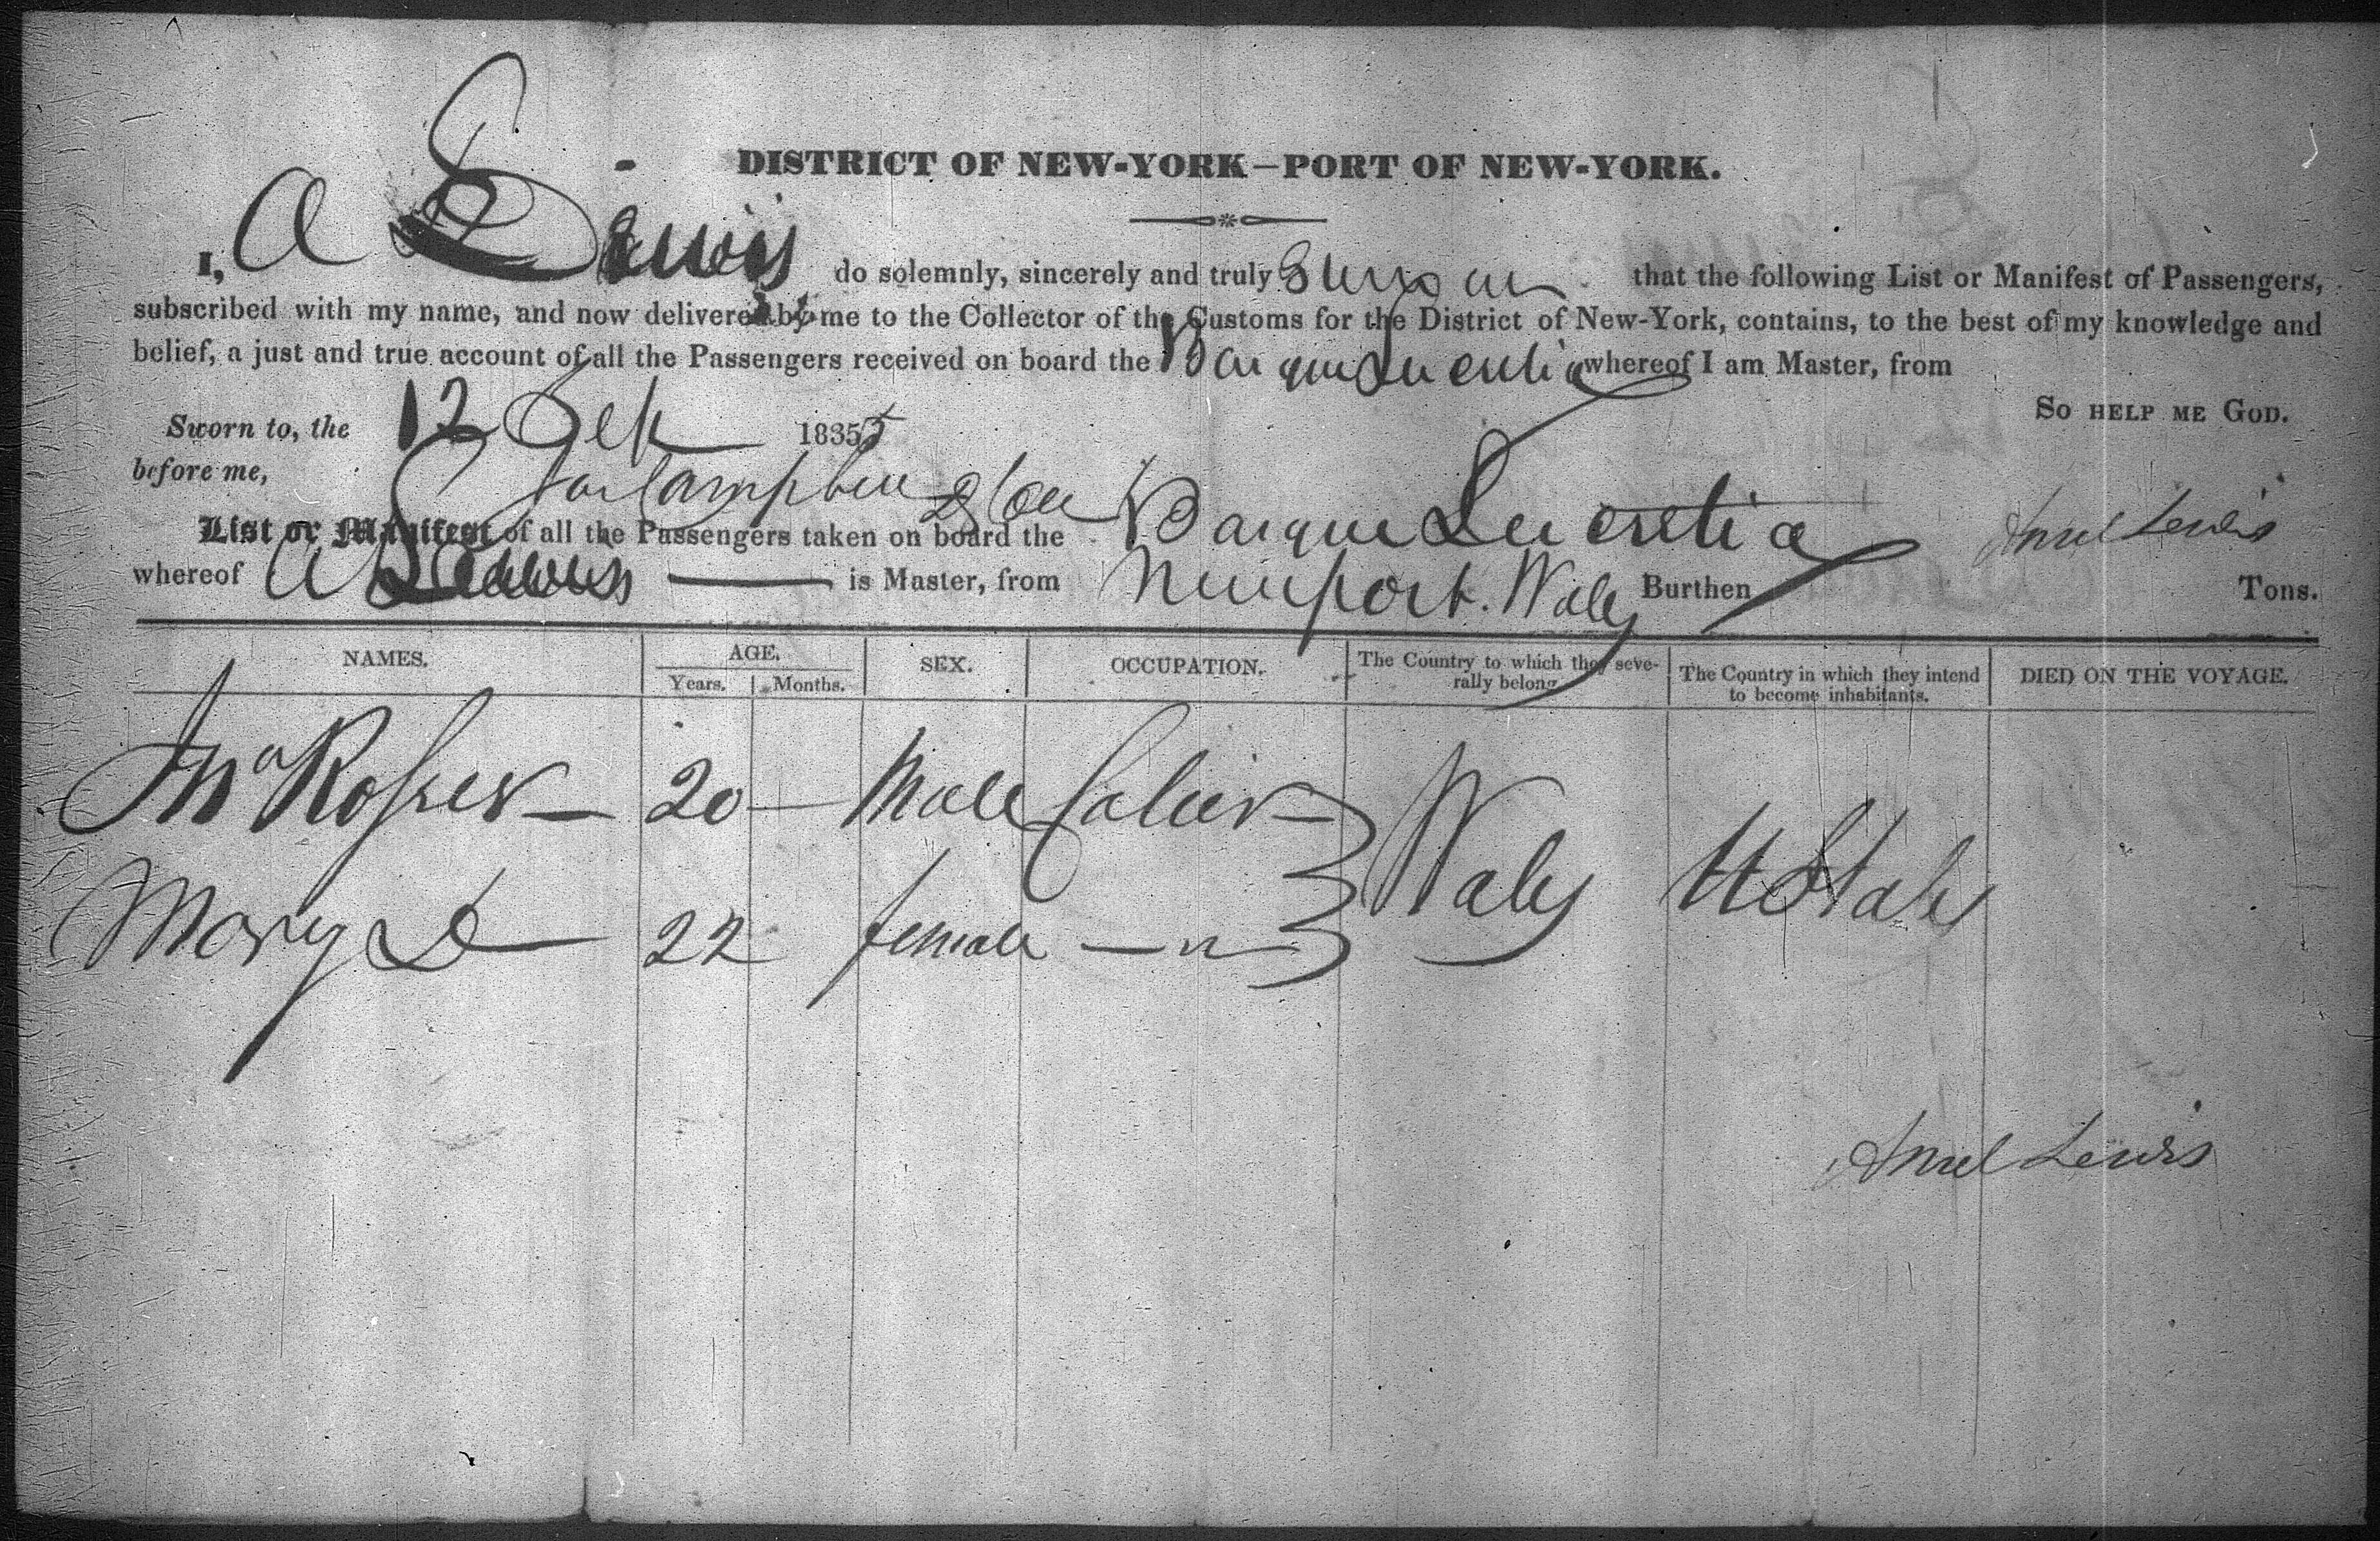 DISTRICT OF NEW-YORK–PORT OF NEW-YORK.
I, A Lewis do solemnly, sincerely and truly swear that the following List or Manifest of Passengers,
subscribed with my name, and now delivered by me to the Collector of the Customs for the District of New-York, contains, to the best of my knowledge and
belief, a just and true account of all the Passengers received on board the Barque Lucretia whereof I am Master, from
Sworn to, the 12 1835 So HELP ME GOD.
before me,
List or Manifest of all the Passengers taken on board the Barque Lucretia Lewis
whereof A Lewis is Master, from Newport. Wales Burthen Tons.
NAMES. AGE. SEX. OCCUPATION. The Country to which they severally belong. The Country in which they intend to become inhabitants. DIED ON THE VOYAGE.
Years. Months.
Jno Rosser 20 Male Colier Wales U States
Mary Do 22 female
Lewis